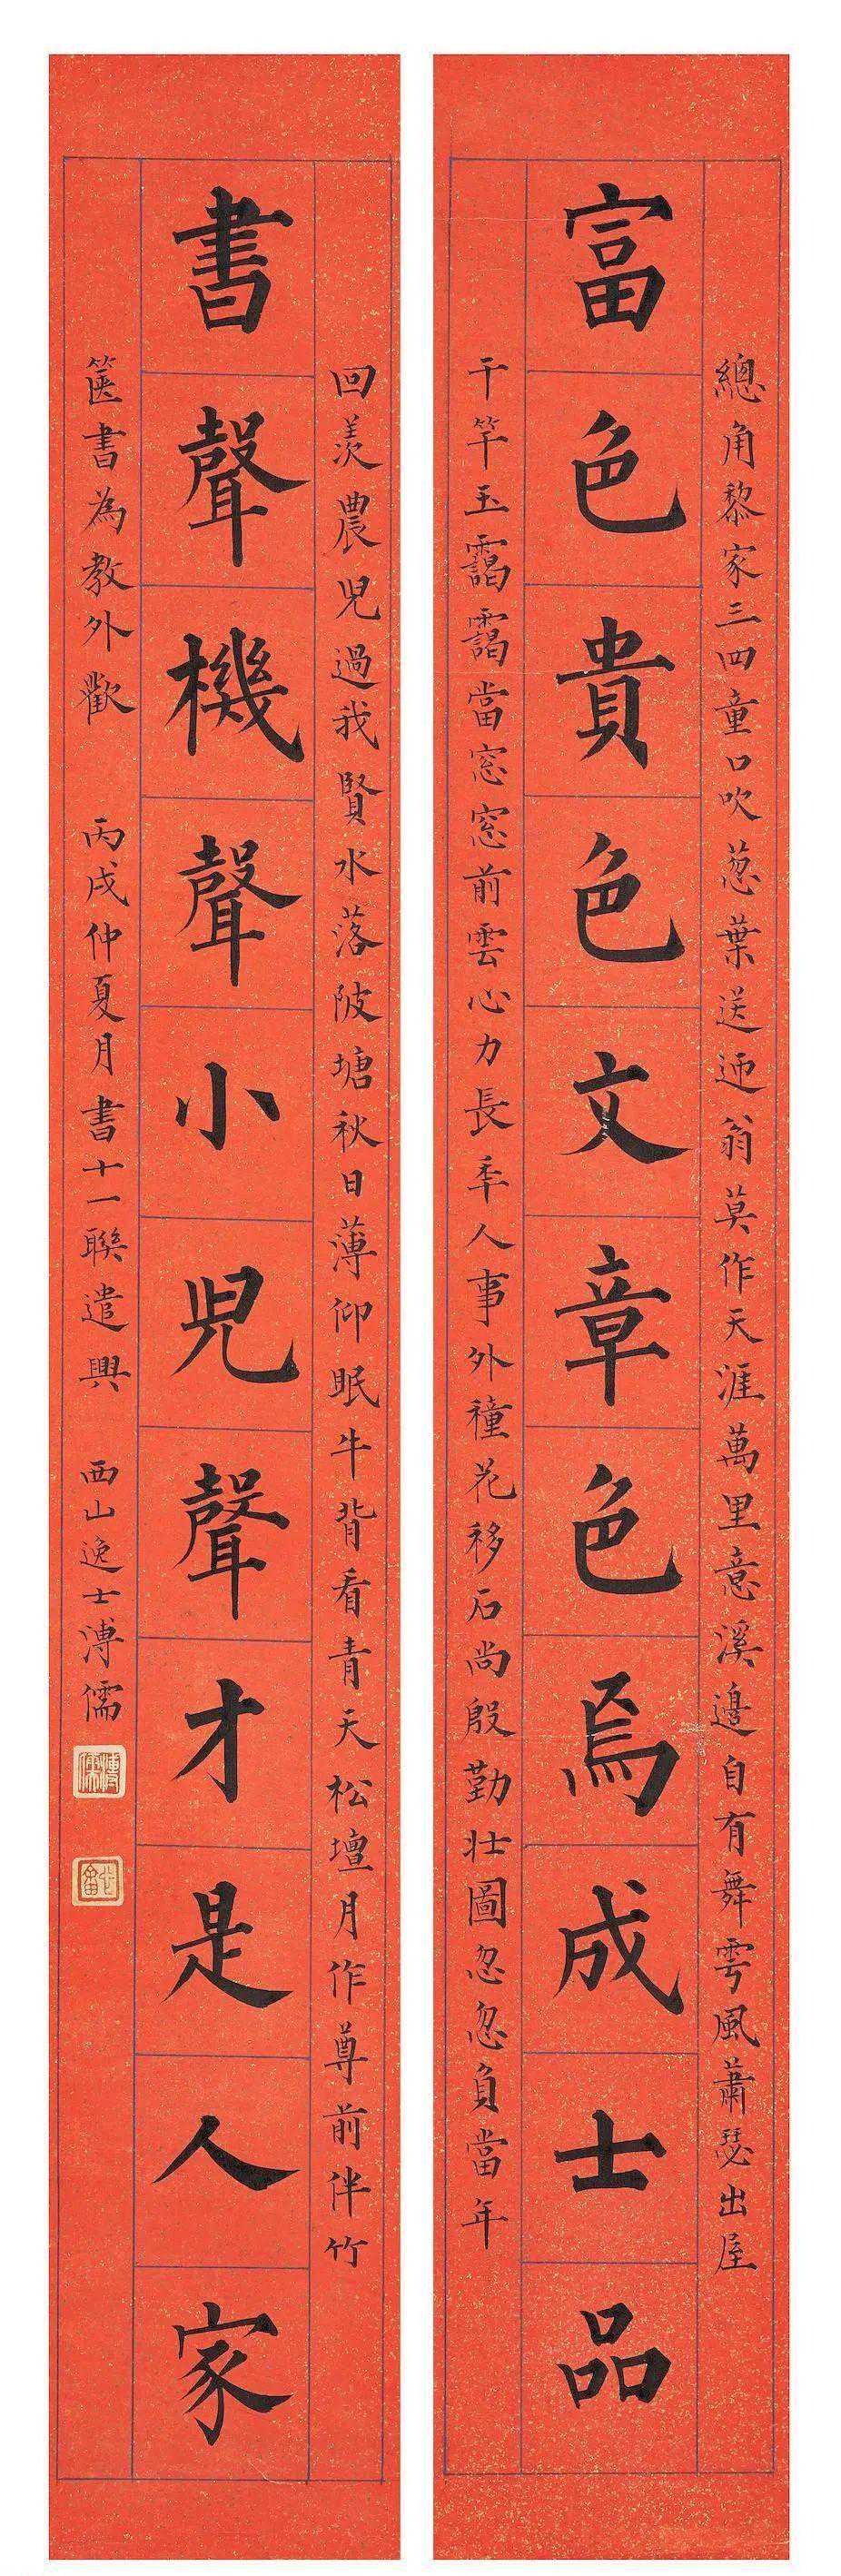 總角黎家三四童口吹葱葉送迊翁莫作天涯萬里意溪邊自有舞雩風蕭瑟出屋
富色貴色文章色焉成士品
千竿玉靄靄當窓窓前雲心力長秊人事外穜花移石尚殷勤壯圖忽忽負當年
回羨農児過我賢水落陂塘秋日薄仰眠牛背看青天松壇月作尊前伴竹
書聲機聲小児聲才是人家
箧書為教外歡 丙戌仲夏月書十一聯遣興 西山逸士溥儒
溥儒